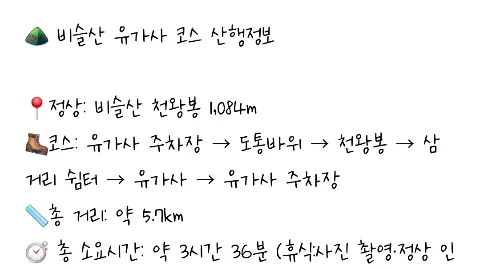 ⛰️ 비슬산 유가사 코스 산행정보
📍정상: 비슬산 천왕봉 1,084m
🥾코스: 유가사 주차장 → 도통바위 → 천왕봉 → 삼
거리 쉼터 → 유가사 → 유가사 주차장
📏총 거리: 약 5.7km
⏱️ 총 소요시간: 약 3시간 36분 (휴식·사진 촬영·정상 인